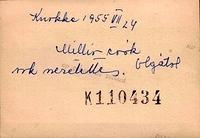 Knokke 1955 VII 24
Millió csók
sok szeretettel. Olgától
K110434